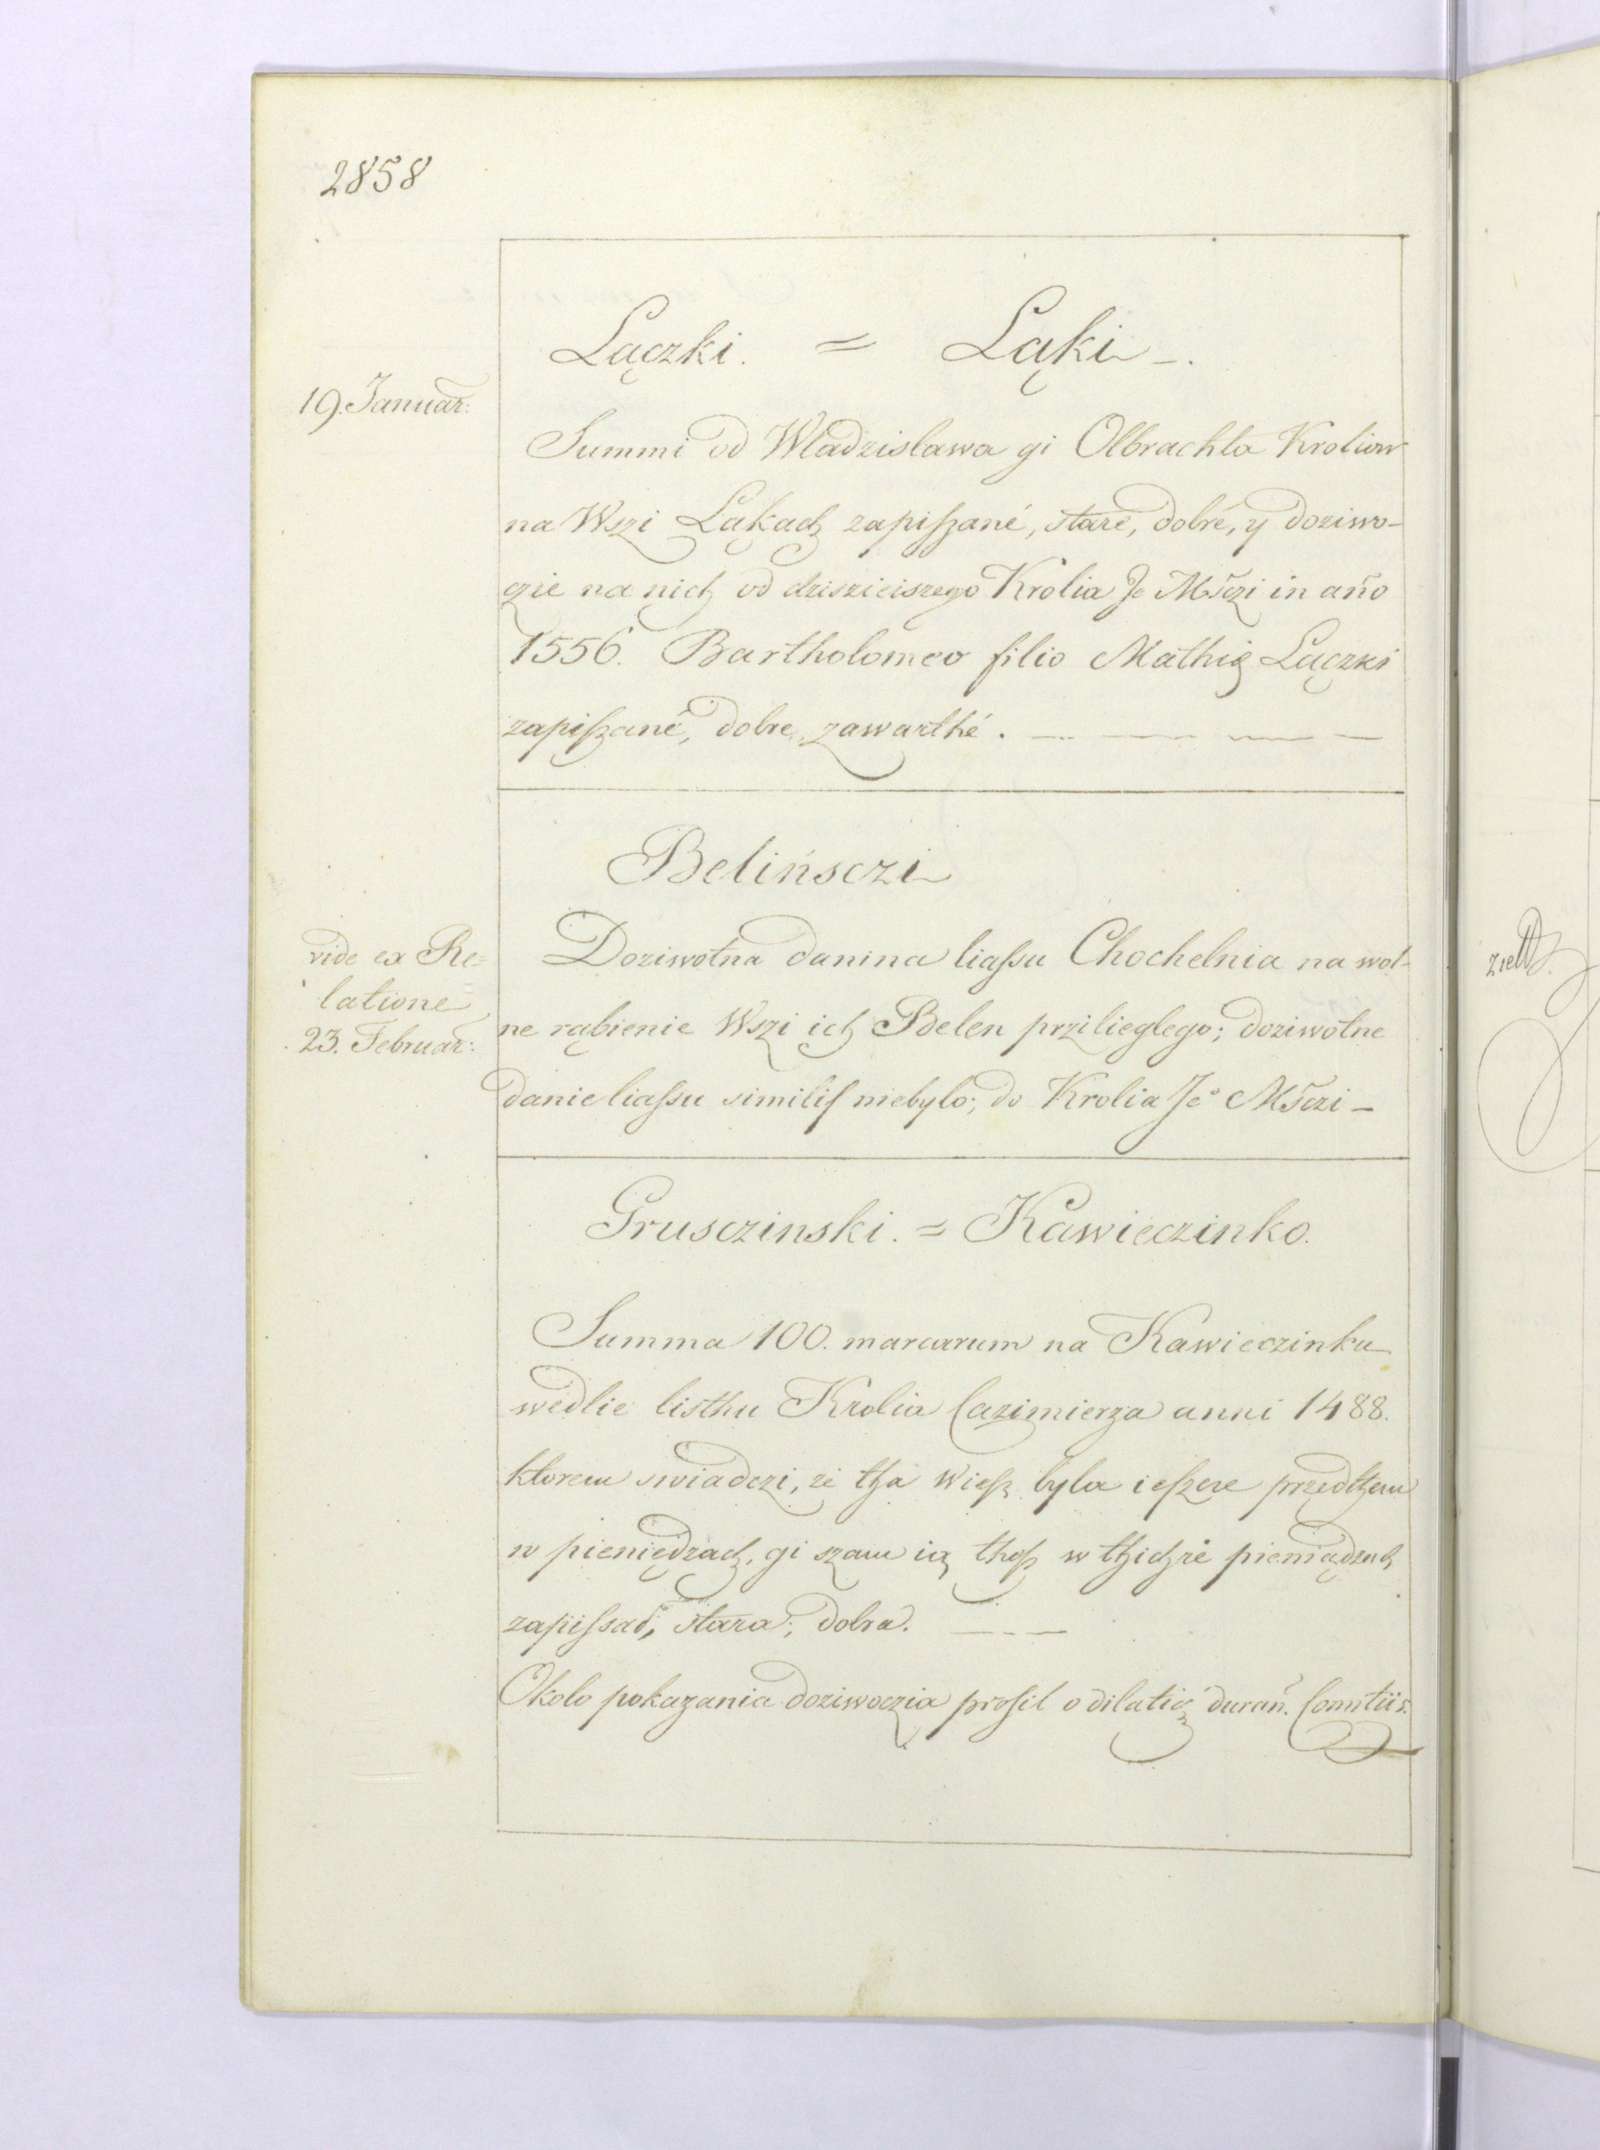 2858
Lączki. = Ląki -.
19. Januar:
Summi od Wladzislawa gi Olbrachta Kroliow
na Wszi Ląkach zapiszané, staré, dobré, y doziwo-
czie na nich od dzisziejszego Krolia Je Mśczi in ano
1556. Bartholomeo filio Mathię Lączki
zapiszané, dobre zawarthé.
Belińsczi
vide ex Re=
latione
23. Februar:
Doziwotna danina liassu Chochelnia na wol-
ne rąbienie Wszi ich Belen przilieglego; doziwotne
danie liassu similis niebylo; do Krolia Jeo Mśczi -
Grusczinski. = Kawieczinko.
Summa 100. marcarum na Kawieczinku
wedlie listhu Krolia Cazimierza anni 1488.
ktorem swiadczi, ze tha Wiesz byla iescze przedthem
w pieniędzach, gi szam ią thesz w thichże pieniądzach
zapissał, stara; dobra.
Okolo pokazania doziwoczia prosil o dilatię durań. Comitiis.